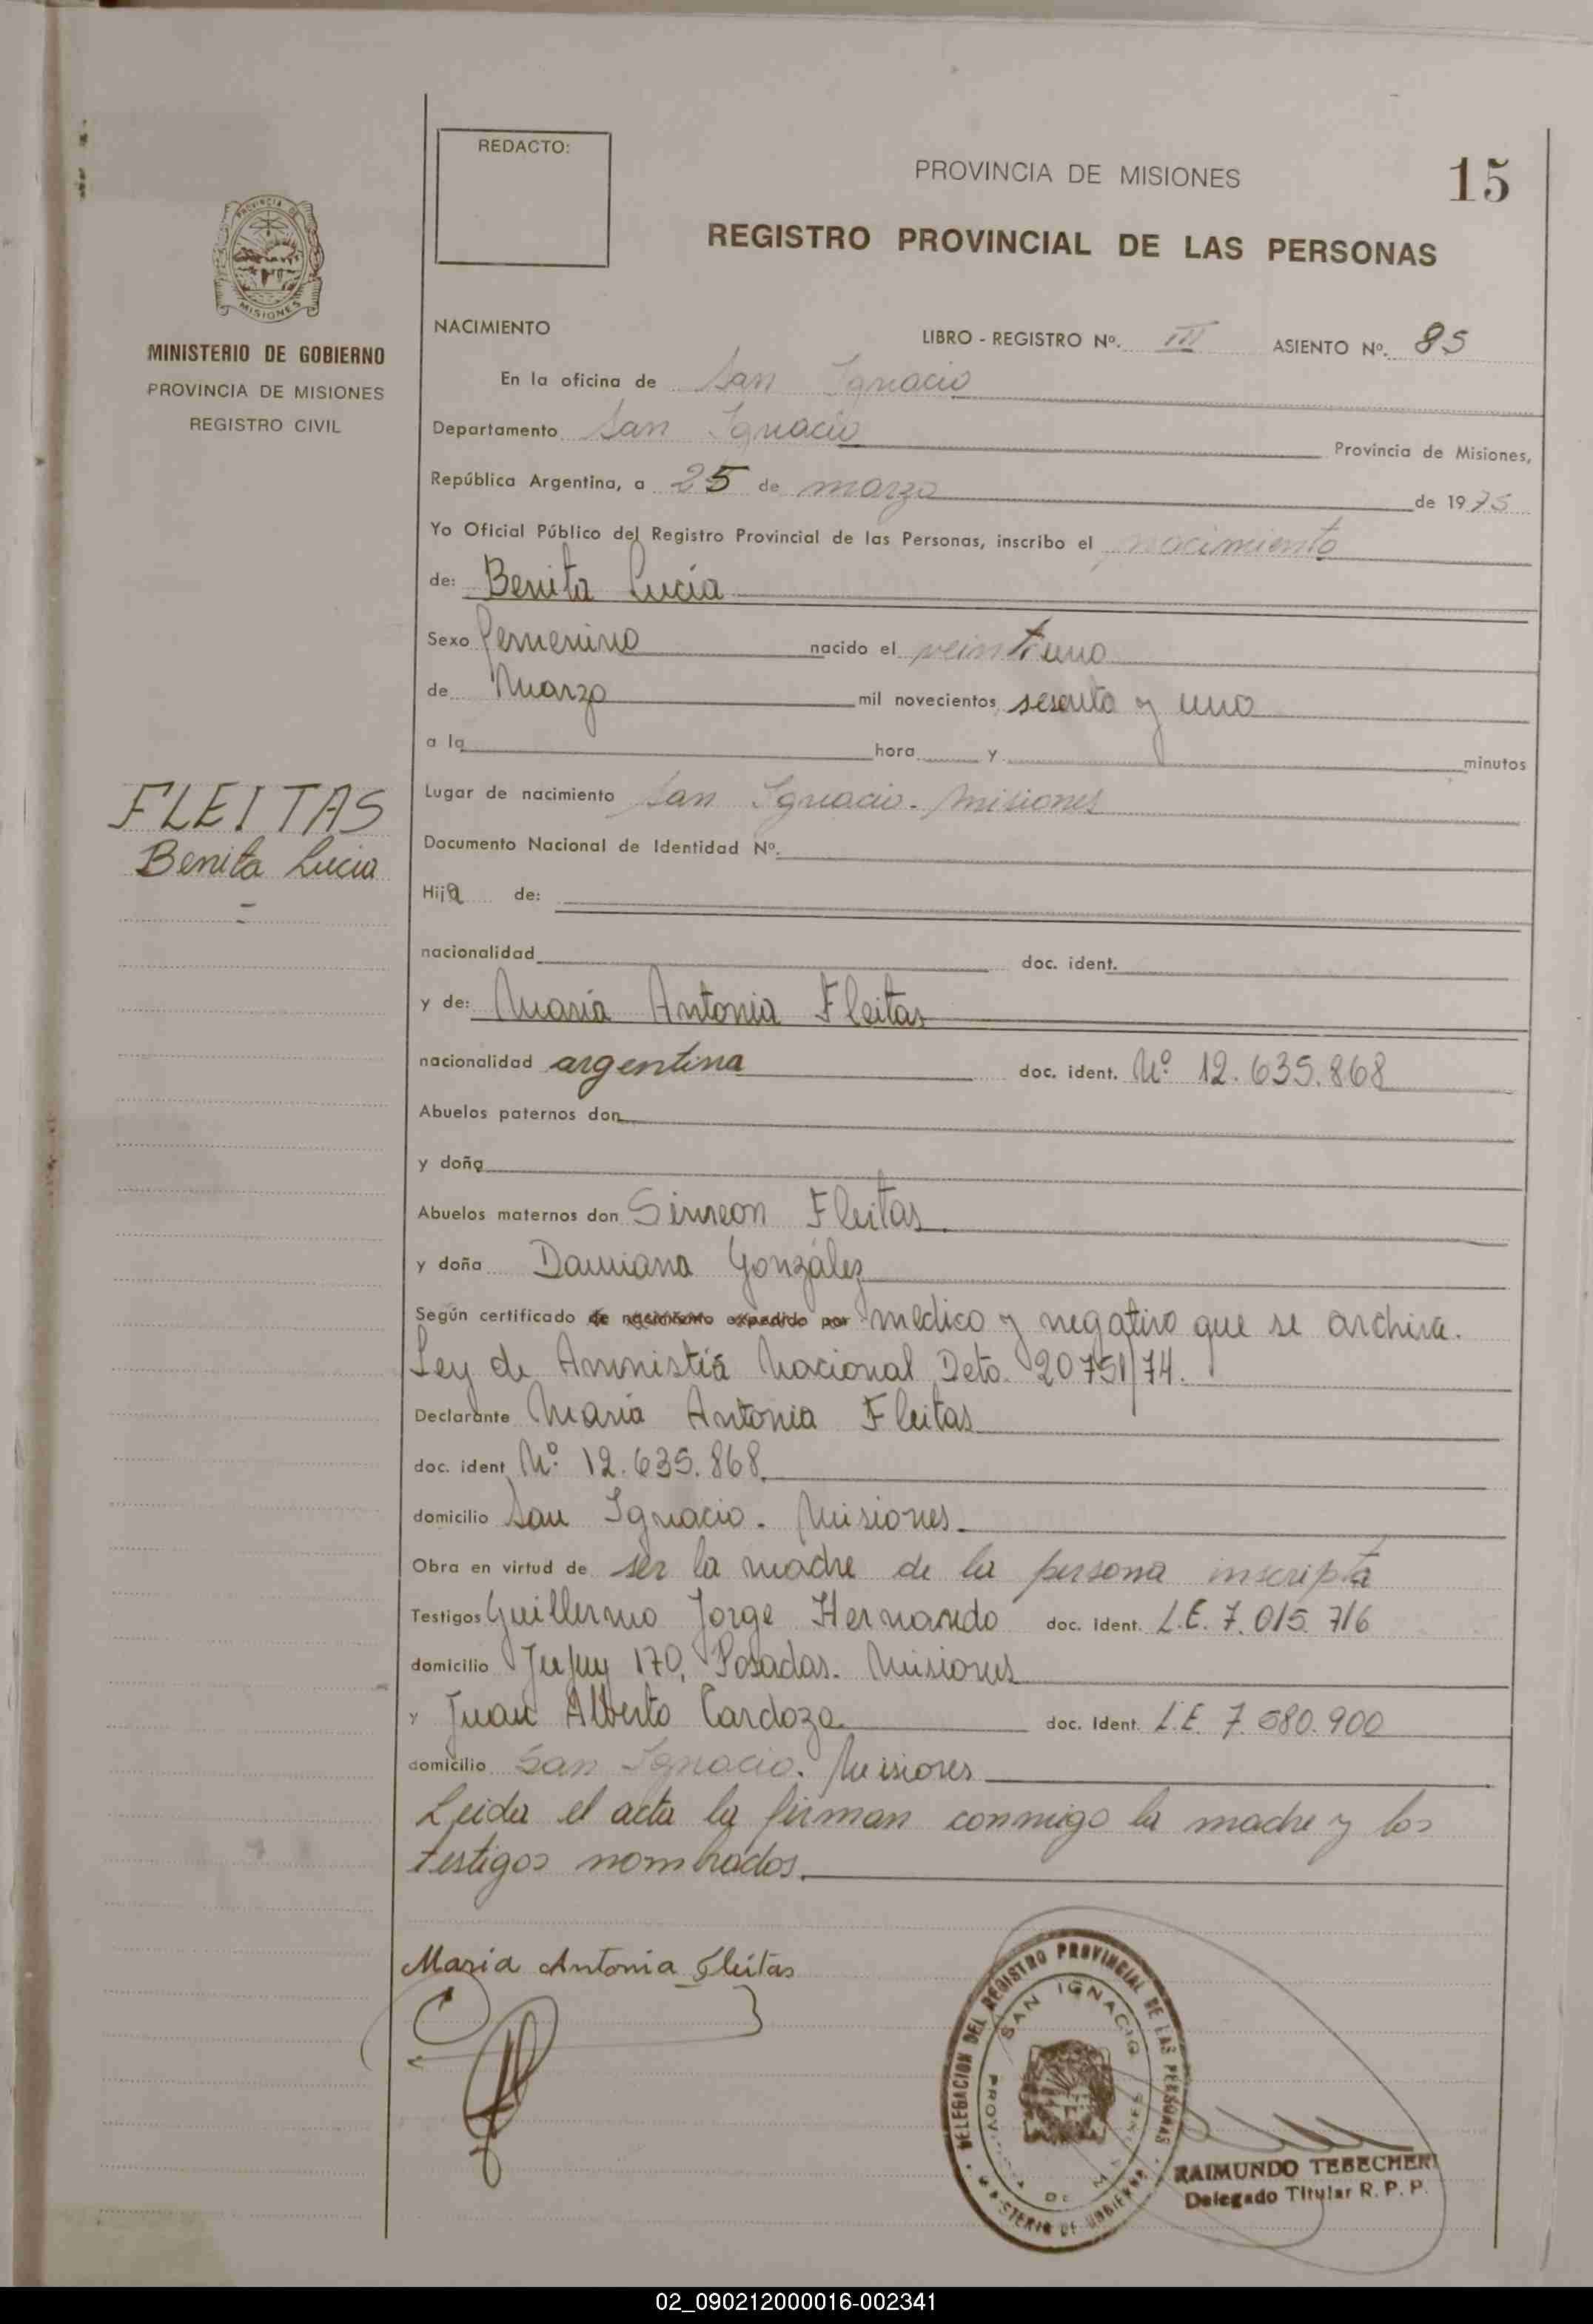 REDACTO:
PROVINCIA DE MISIONES
15
REGISTRO PROVINCIAL DE LAS PERSONAS
PROVINCIA DE
MISIONES
MINISTERIO DE GOBIERNO
PROVINCIA DE MISIONES
REGISTRO CIVIL
NACIMIENTO LIBRO - REGISTRO Nº. III ASIENTO Nº. 85
En la oficina de San Ignacio
Departamento San Ignacio Provincia de Misiones,
República Argentina, a 25 de marzo de 1975
Yo Oficial Público del Registro Provincial de las Personas, inscribo el nacimiento
de: Benita Lucía
Sexo femenino nacido el veintiuno
de Marzo mil novecientos sesenta y uno
a la hora y minutos
Lugar de nacimiento San Ignacio. Misiones
FLEITAS
Benita Lucia
Documento Nacional de Identidad Nº.
Hija de:
nacionalidad doc. ident.
y de: María Antonia Fleitas
nacionalidad argentina doc. ident. Nº 12.635.868
Abuelos paternos don
y doña
Abuelos maternos don Simeon Fleitas
y doña Damiana González
Según certificado de nacimiento expedido por médico y negativo que se archiva.
Ley de Amnistía Nacional Deto. 20751/74.
Declarante María Antonia Fleitas
doc. ident Nº 12.635.868
domicilio San Ignacio. Misiones
Obra en virtud de ser la madre de la persona inscripta
Testigos Guillermo Jorge Hernando doc. Ident. L.E. 7.015.716
domicilio Jujuy 170, Posadas. Misiones
y Juan Alberto Cardozo doc. Ident. L.E. 7.580.900
domicilio San Ignacio. Misiones
Leida el acta la firman conmigo la madre y los
testigos nombrados.
Maria Antonia Fleitas
DELEGACION DEL REGISTRO PROVINCIAL DE LAS PERSONAS
SAN IGNACIO
PROVINCIA DE MISIONES
MINISTERIO DE GOBIERNO
RAIMUNDO TEBECHERI
Delegado Titular R. P. P.
02_090212000016-002341